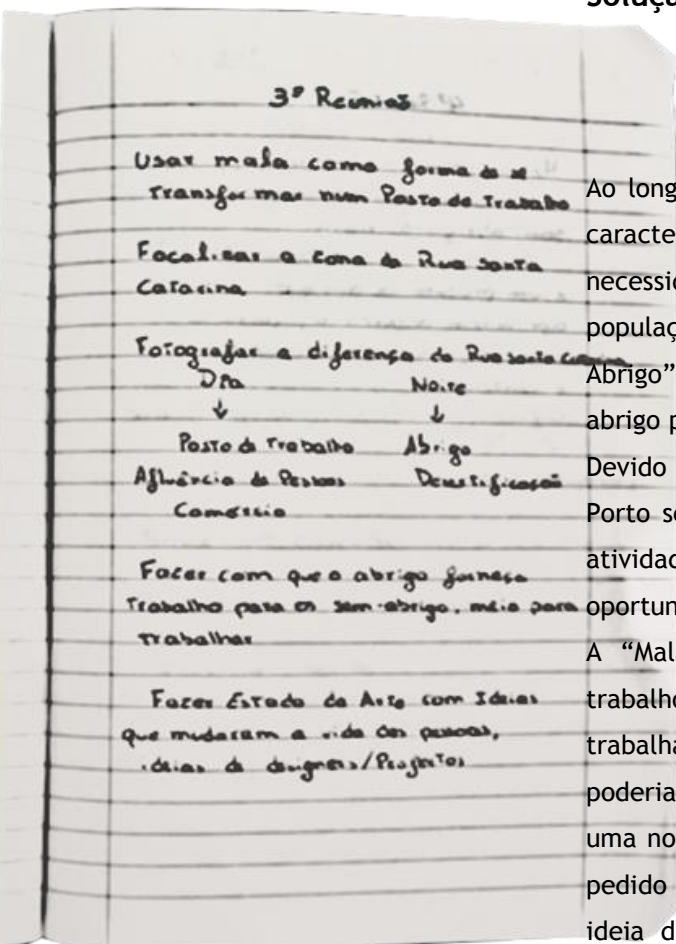 3ª Reunião
Usar mala como forma de se
transformar num Posto de Trabalho
Focalizar a zona da Rua Santa
Catarina
Fotografar a diferença da Rua santa Catarina
Dia Noite
↓ ↓
Posto de Trabalho Abrigo
Afluência de Pessoas Desertificação
Comércio
Fazer com que o abrigo forneça
Trabalho para os sem-abrigo, meio para
trabalhar
Fazer Estado da Arte com Ideias
que mudaram a vida das pessoas,
ideias de designers/Projetos
Soluçã
Ao long
caracte
necessid
populaç
Abrigo”
abrigo p
Devido
Porto se
atividad
oportun
A “Mal
trabalho
trabalha
poderia
uma no
pedido
ideia d